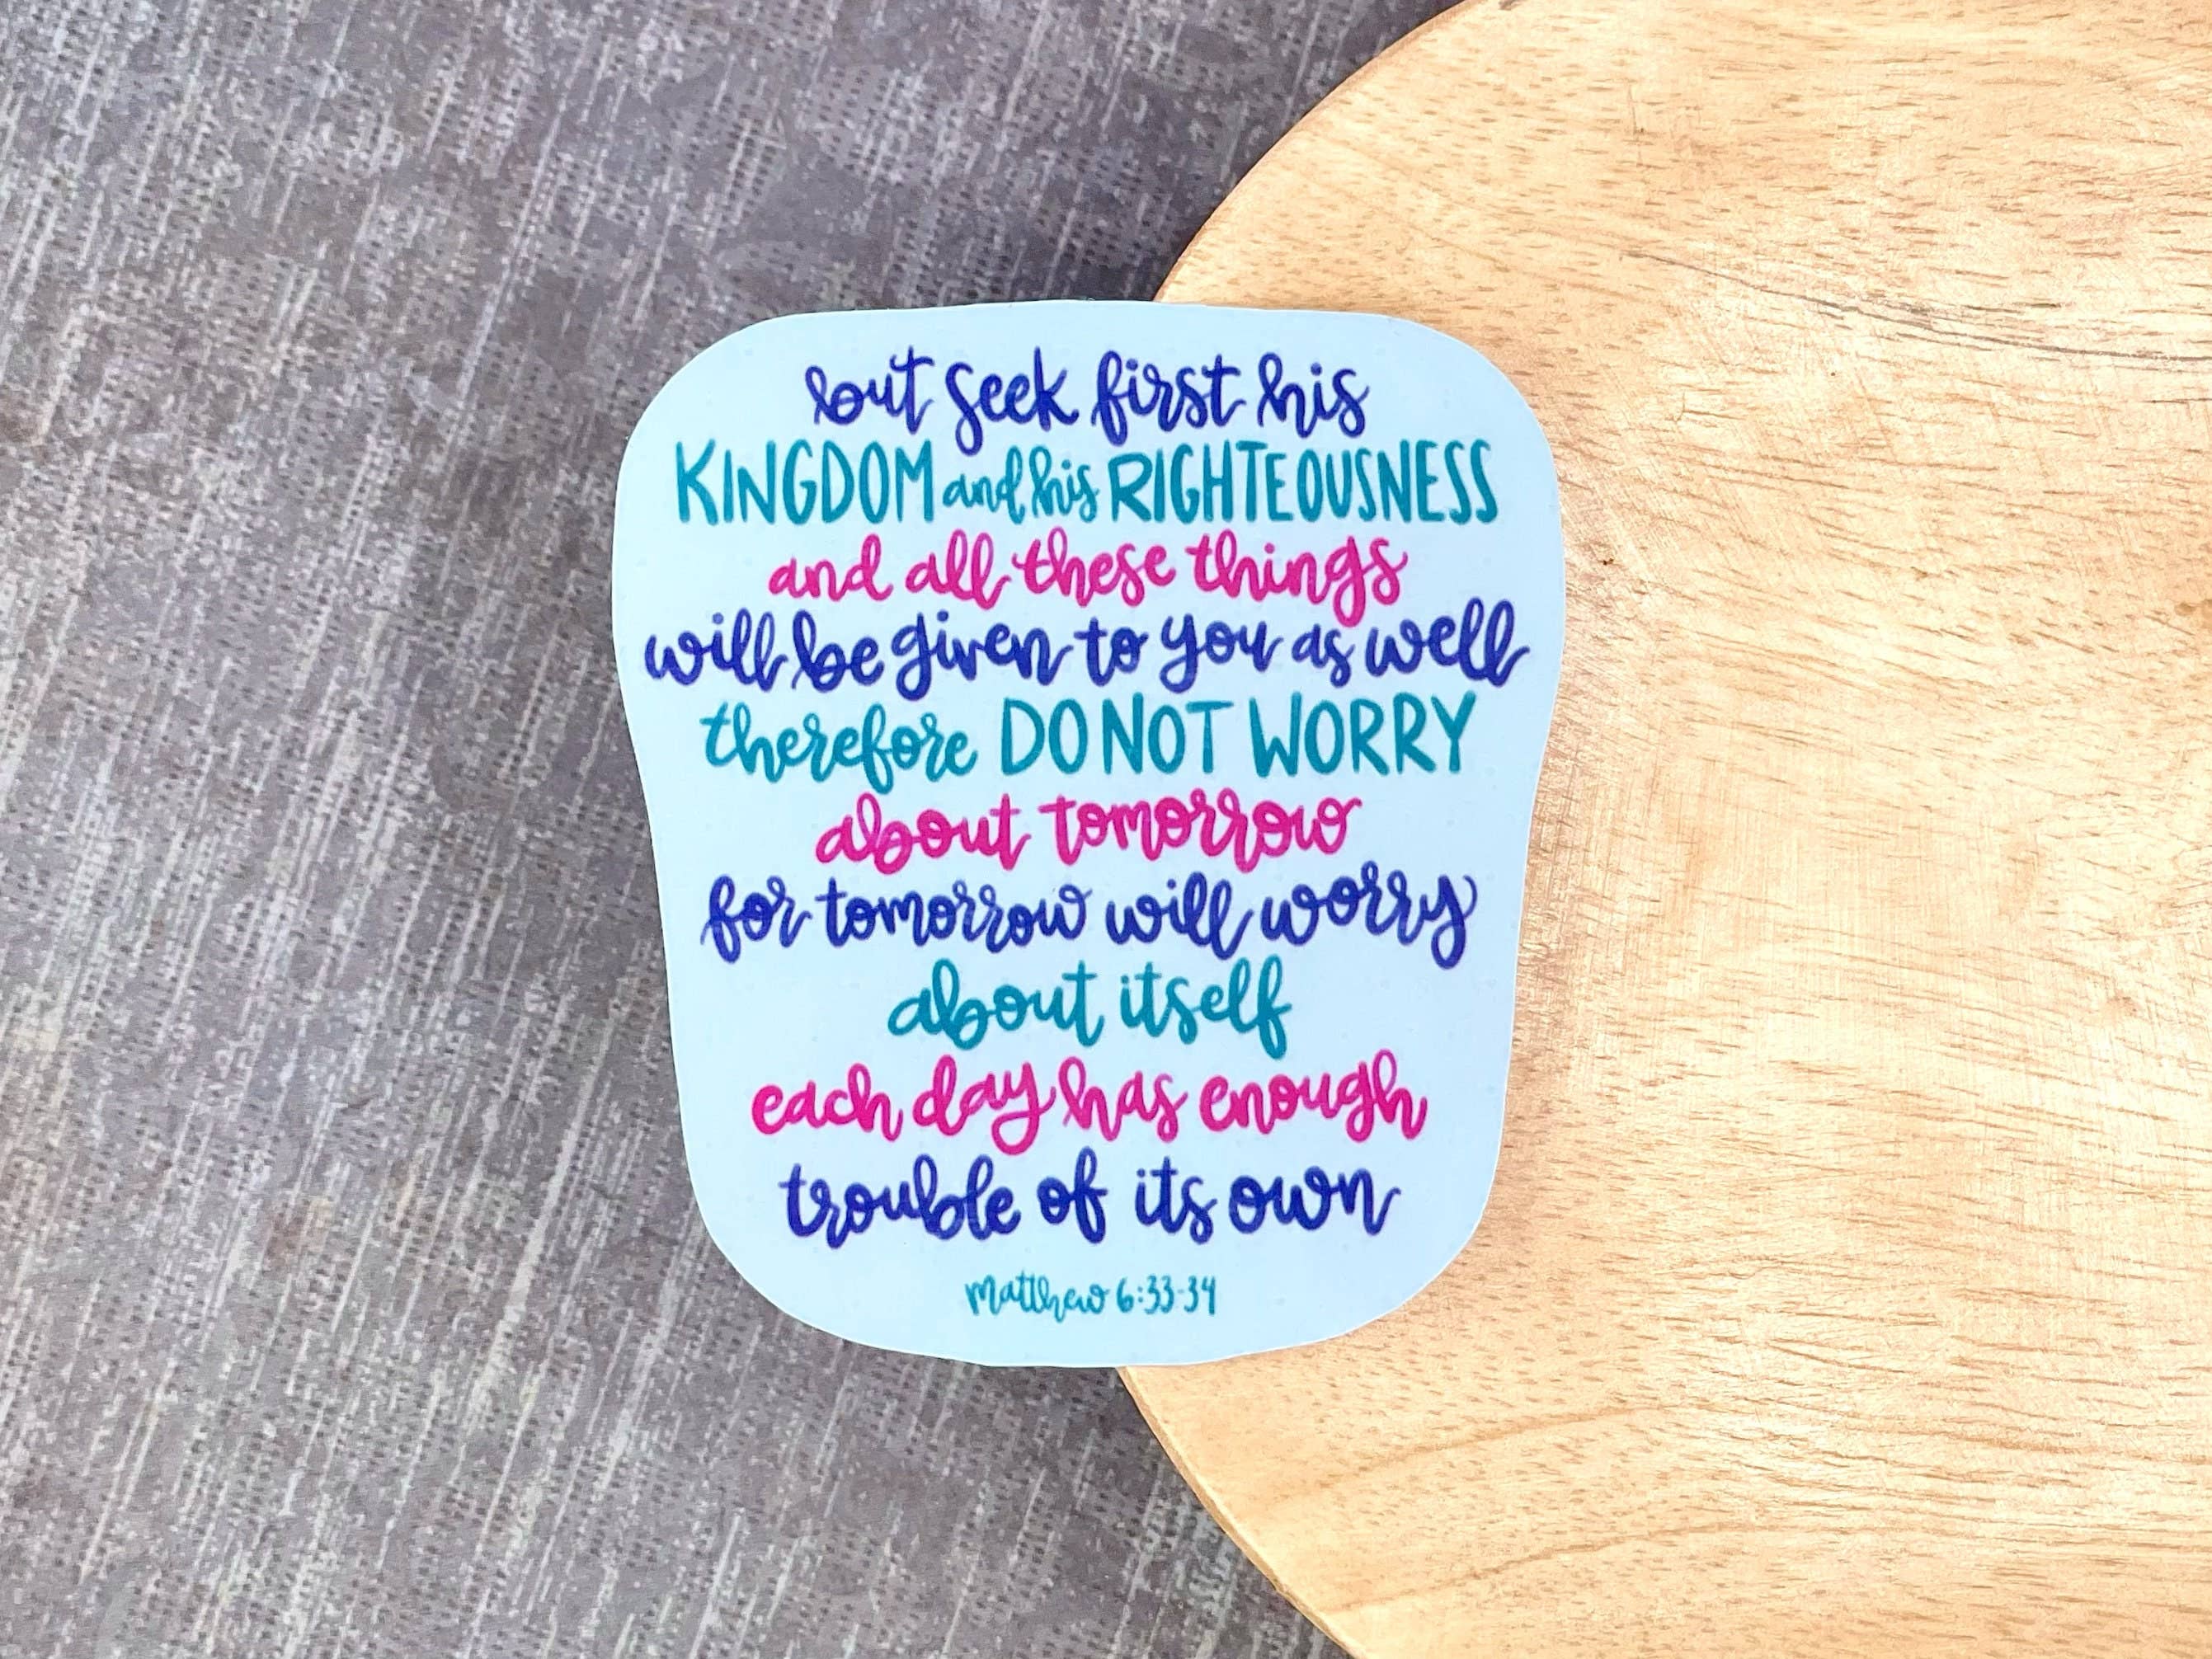 but seek first his
KINGDOM and his RIGHTEOUSNESS
and all these things
will be given to you as well
therefore DO NOT WORRY
about tomorrow
for tomorrow will worry
about itself
each day has enough
trouble of its own
Matthew 6:33-34